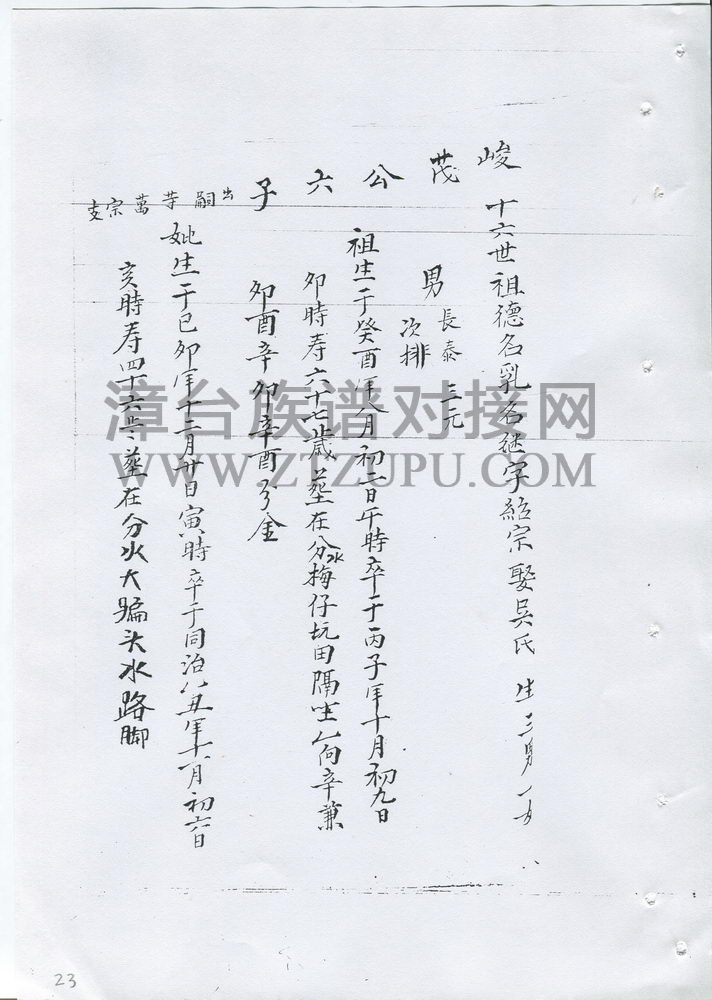 峻茂公六子出嗣芋萬宗支
十六世祖德名乳名继字紹宗娶吳氏生三男一女
男長泰三元
次排
祖生于癸酉年八月初二日午時卒于丙子年十月初九日
卯時寿六十七歲葬在分水梅仔坑田隔坐乙向辛兼
卯酉辛卯辛酉分金
妣生于已卯年十二月廿日寅時卒于同治八丑年十月初六日
亥時寿四十六歲葬在分水大騙头水路脚
漳台族谱对接网
WWW.ZTZUPU.COM
23